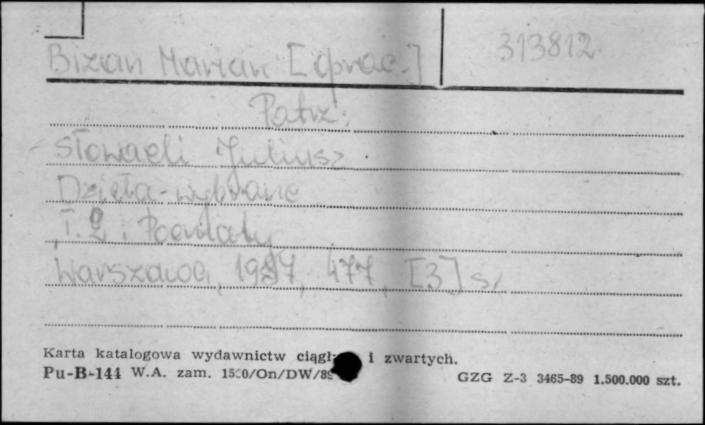 Bizan Marian [oprac.] 313812
Patrz:
Słowacki Juliusz
Dzieła wybrane
T. 2: Poematy
Warszawa, 1987, 477, [3] s.
Karta katalogowa wydawnictw i zwartych.
Pu-B-144 W.A. zam. GZG Z-3 3465-89 1.500.000 szt.